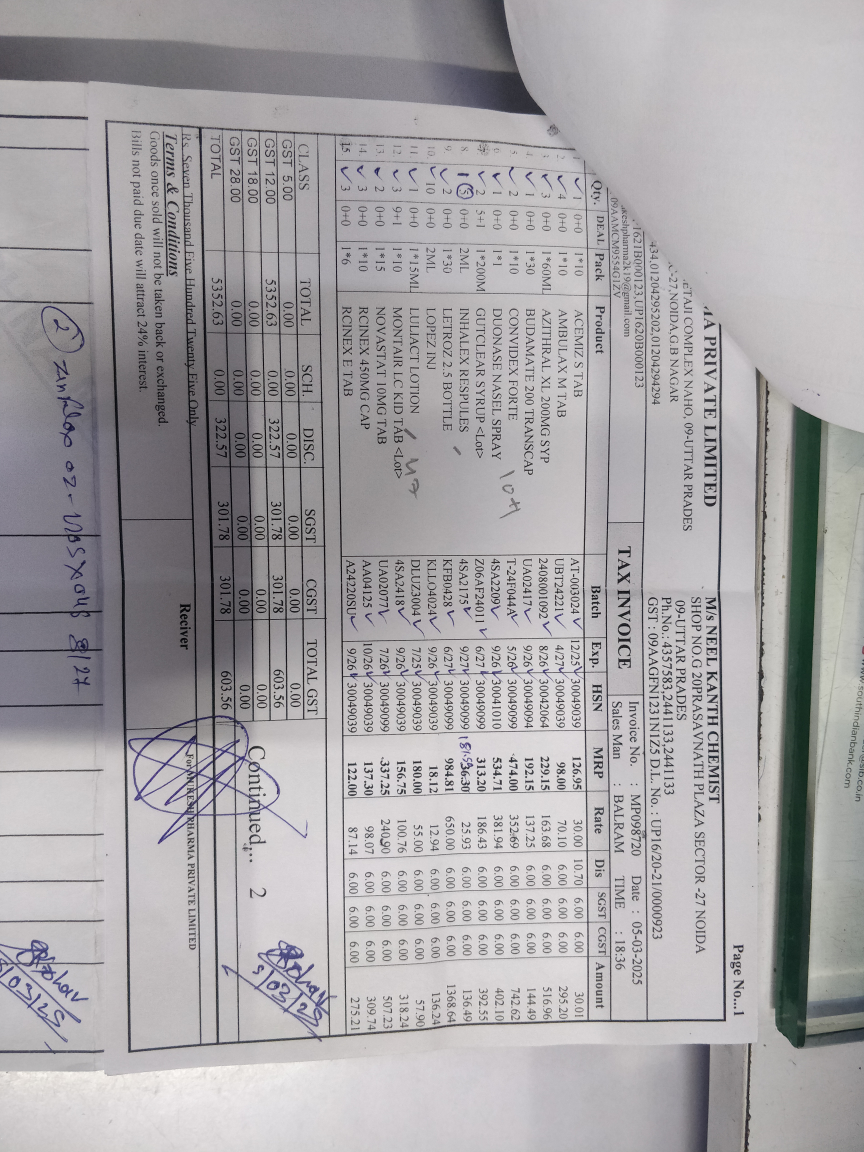 Page No...1
MA PRIVATE LIMITED
ETAJI COMPLEX NAHO, 09-UTTAR PRADES
-27,NOIDA,G.B NAGAR
434,01204295202,01204294294
1621B000123,UP1620B000123
keshpharma2k19@gmail.com
09AAMCM9554G1ZV
M/s NEEL KANTH CHEMIST
SHOP NO.G 20PRASAVNATH PLAZA SECTOR -27 NOIDA
09-UTTAR PRADES
Ph.No.: 4357583,2441133,2441133
GST : 09AAGFN1231N1Z5 D.L. No. : UP16/20-21/0000923
TAX INVOICE
Invoice No. : MP098720 Date : 05-03-2025
Sales Man : BALRAM TIME : 18:36
Qty. DEAL Pack Product Batch Exp. HSN MRP Rate Dis SGST CGST Amount
1 0+0 1*10 ACEMIZ S TAB AT-003024 12/25 30049039 126.95 30.00 10.70 6.00 6.00 30.01
2. 4 0+0 1*10 AMBULAX M TAB UBT24221 4/27 30049039 98.00 70.10 6.00 6.00 6.00 295.20
3. 3 0+0 1*60ML AZITHRAL XL 200MG SYP 2408001092 8/26 30042064 229.15 163.68 6.00 6.00 6.00 516.96
4. 1 0+0 1*30 BUDAMATE 200 TRANSCAP UA02417 9/26 30049094 192.15 137.25 6.00 6.00 6.00 144.49
5. 2 0+0 1*10 CONVIDEX FORTE T-24F044A 5/26 30049099 474.00 352.69 6.00 6.00 6.00 742.62
6. 1 0+0 1*1 DUONASE NASEL SPRAY 4SA2209 9/26 30041010 534.71 381.94 6.00 6.00 6.00 402.10
2 5+1 1*200M GUTCLEAR SYRUP <Lot> Z06AF24011 6/27 30049099 313.20 186.43 6.00 6.00 6.00 392.55
8. 5 0+0 2ML INHALEX RESPULES 4SA2175 9/27 30049099 36.30 25.93 6.00 6.00 6.00 136.49
9. 2 0+0 1*30 LETROZ 2.5 BOTTLE KFB0428 6/27 30049099 984.81 650.00 6.00 6.00 6.00 1368.64
10. 10 0+0 2ML LOPEZ INJ KLLO4024 9/26 30049039 18.12 12.94 6.00 6.00 6.00 136.24
11. 1 0+0 1*15ML LULJACT LOTION DLUZ3004 7/25 30049039 180.00 55.00 6.00 6.00 6.00 57.90
12. 3 9+1 1*10 MONTAIR LC KID TAB <Lot> 4SA2418 9/26 30049039 156.75 100.76 6.00 6.00 6.00 318.24
13. 2 0+0 1*15 NOVASTAT 10MG TAB UA02077 7/26 30049039 337.25 240.90 6.00 6.00 6.00 507.23
14. 3 0+0 1*10 RCINEX 450MG CAP AA04125 10/26 30049039 137.30 98.07 6.00 6.00 6.00 309.74
15 3 0+0 1*6 RCINEX E TAB A24220SU 9/26 30049039 122.00 87.14 6.00 6.00 6.00 275.21
CLASS TOTAL SCH. DISC. SGST CGST TOTAL GST
GST 5.00 0.00 0.00 0.00 0.00 0.00 0.00
GST 12.00 5352.63 0.00 322.57 301.78 301.78 603.56
GST 18.00 0.00 0.00 0.00 0.00 0.00 0.00
GST 28.00 0.00 0.00 0.00 0.00 0.00 0.00
TOTAL 5352.63 0.00 322.57 301.78 301.78 603.56
Continued... 2
Rs. Seven Thousand Five Hundred Twenty Five Only
Terms & Conditions
Goods once sold will not be taken back or exchanged.
Bills not paid due date will attract 24% interest.
Reciver
PHARMA PRIVATE LIMITED
5/03/25
2
8/27
5/03/25
www.southindianbank.com
@sib.co.in